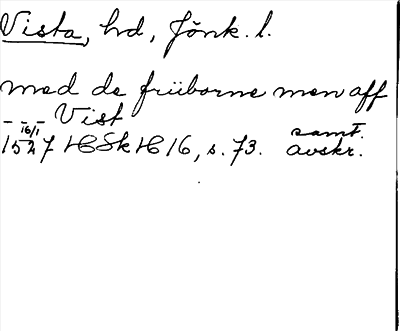 Vista, hd, Jönk. l.
med de früborne men aff
- - - Vist
16/1 samt.
1527 HSkH 16, s. 73. avskr.